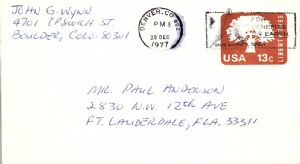 JOHN G. WYNN
4701 IPSWICH ST.
BOULDER, COLO. 80301
DENVER, CO 802
PM
28 DEC
1977
LIBERTY TREE
USA 13c
MR. PAUL ANDERSON
2830 N.W. 12TH AVE
FT. LAUDERDALE, FLA. 33311